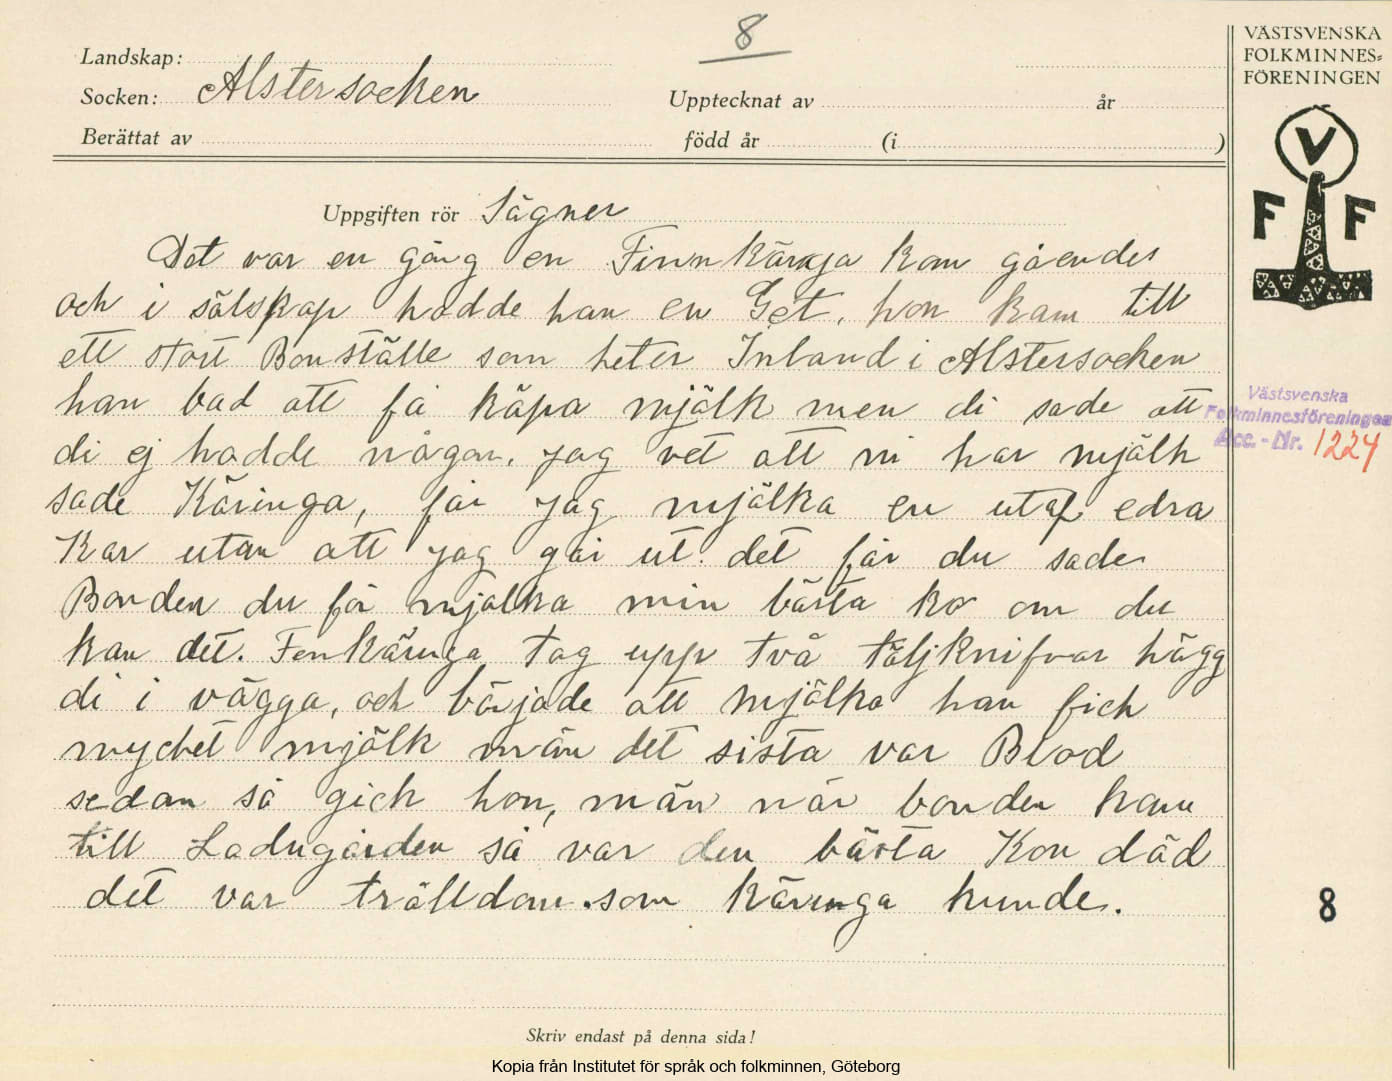 8
Landskap:
Socken: Alstersocken
Upptecknat av år
Berättat av född år (i )
Uppgiften rör Sägner
Det var en gång en Finnkäringa kom gåendes
och i sälskap hadde han en Get, hon kam till
ett stort Bonställe som heter Inland i Alstersocken
han bad att få käpa mjölk men di sade att
di ej hadde någon, jag vet att ni har mjölk
sade Käringa, får jag mjölka en utaf edra
Kor utan att jag går ut. det får du sade
Bonden du får mjölka min bästa ko om du
kan det. Fenkäringa tog upp två täljknifvar hägg
di i vägga, och började att mjölka han fick
mychet mjölk män det sista var Blod
sedan så gick hon, män när bonden kam
till Ladugården så var den bästa Kon död
det var trälldom som käringa kunde.
Skriv endast på denna sida!
Kopia från Institutet för språk och folkminnen, Göteborg
VÄSTSVENSKA
FOLKMINNES-
FÖRENINGEN
V
F F
Västsvenska
Folkminnesföreningen
Acc.-Nr. 1224
8